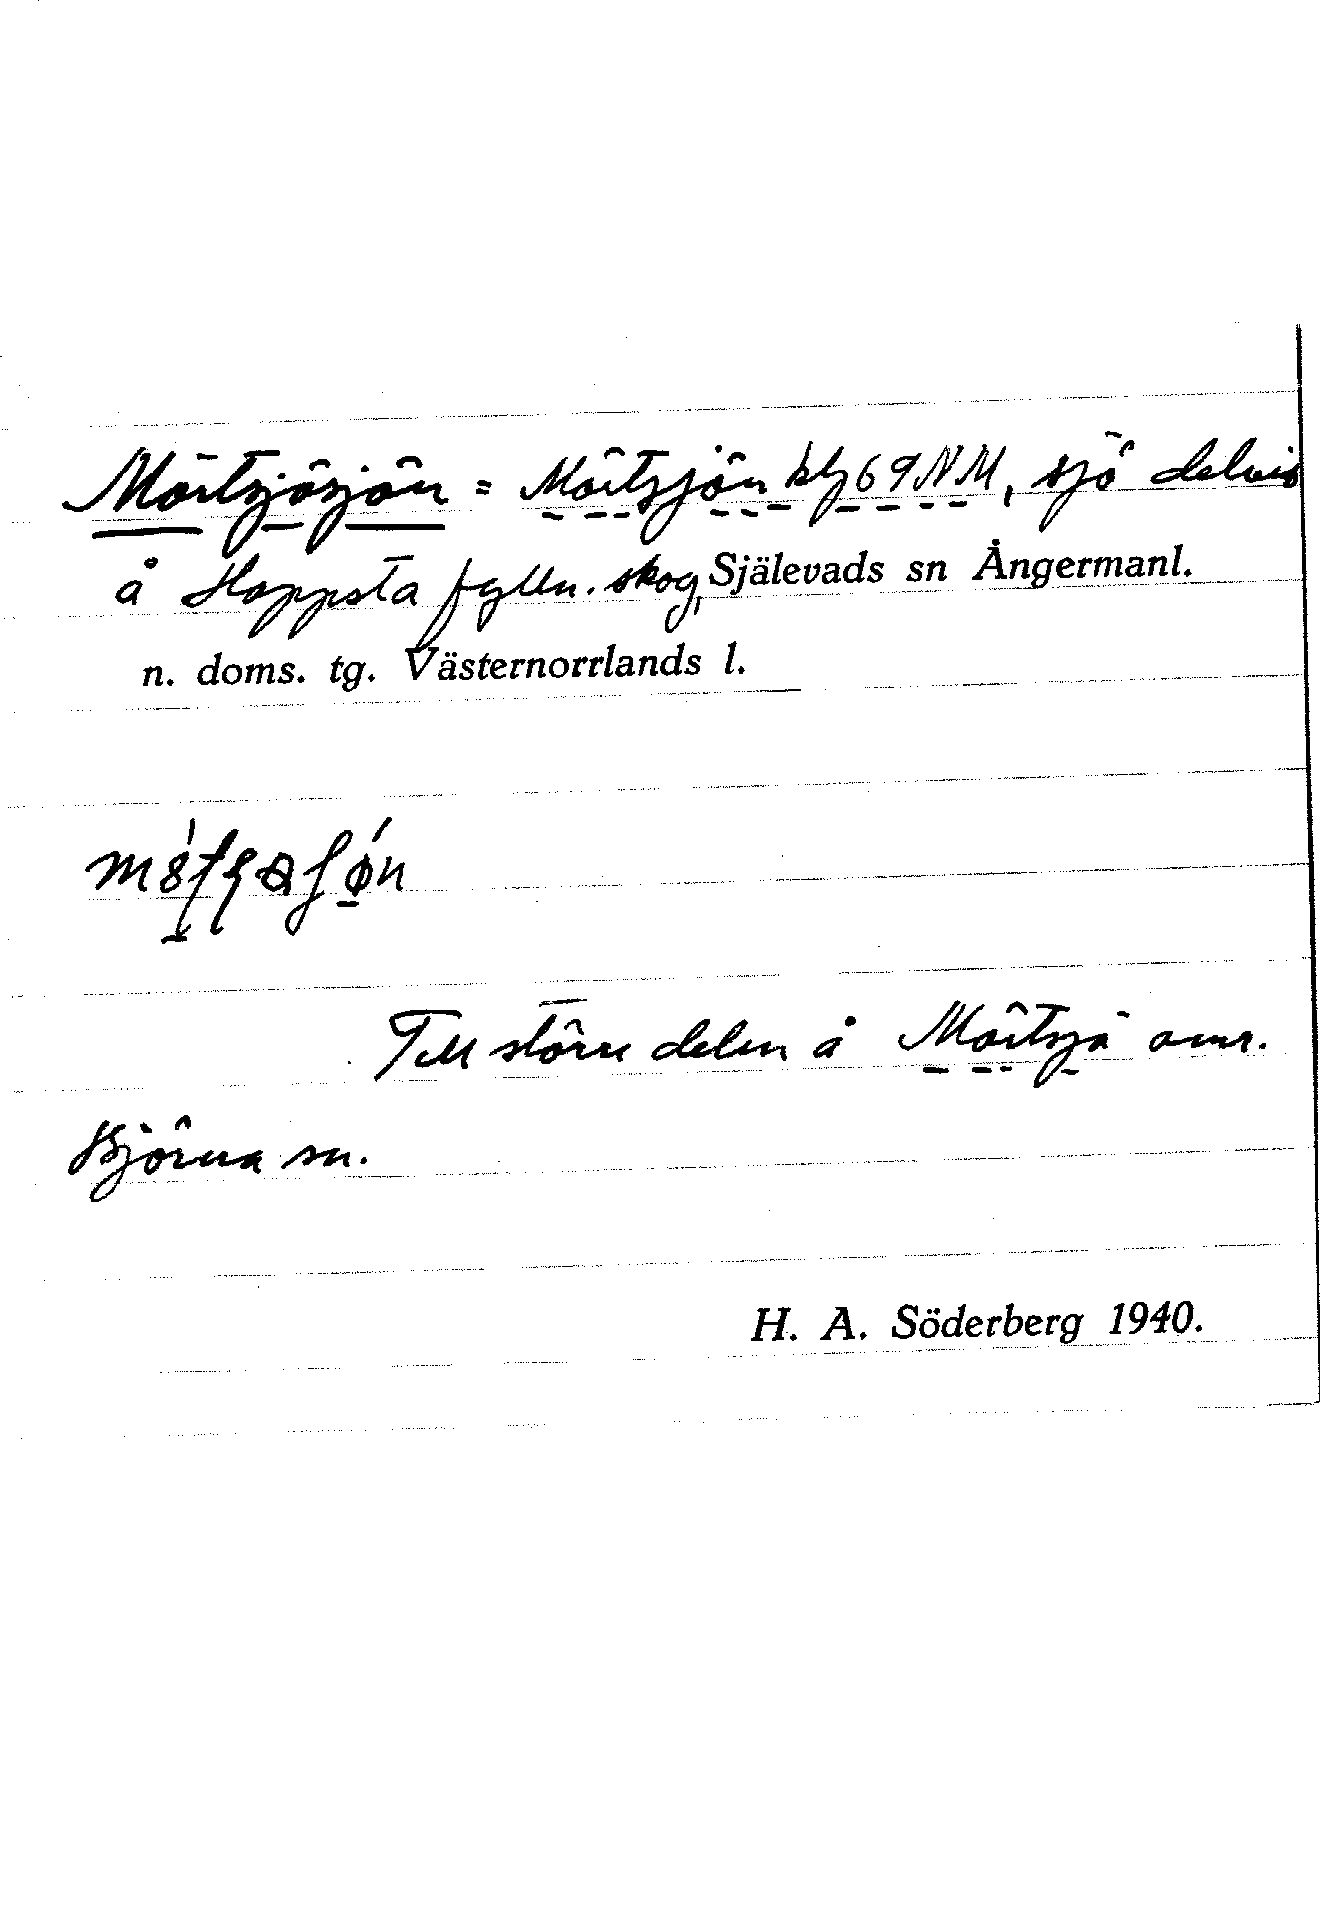 Mörtsjösjön = Mörtsjön kbl 69 NM, sjö delvis
å Hoppsta fylln. skog, Själevads sn Ångermanl.
n. doms. tg. Västernorrlands l.
Till större delen å Mörtsjö omr.
Björna sn.
H. A. Söderberg 1940.